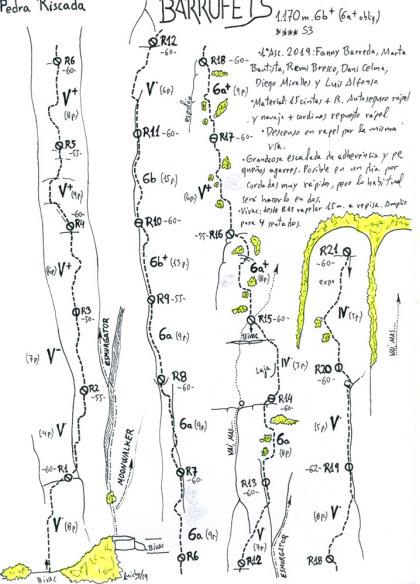 Pedra Riscada
BARRUFETS
1.170 m. 6b+ (6a+ oblig.)
**** S3
•1ª Asc. 2019: Fanny Barreda, Marta
Bautista, Remi Bresco, Dani Celma,
Diego Miralles y Luis Alfonso
•Material: 15 cintas + R. Autoseguro rapel
y navaja + cordinos repuesto rapel
•Descenso en rapel por la misma
vía.
•Grandiosa escalada de adherencia y pe
queños agarres. Posible en un día por
cordadas muy rápidas, pero lo habitual
será hacerlo en dos.
•Vivac: desde R15 rapelar 15 m. a repisa. Amplio
para 4 sentados.
R6
-60-
V+
(8p)
R5
-55-
V+
(9p)
-60-
R4
(6p) V+
R3
-50-
(7p) V-
R2
-55-
(4p) V
-60- R1
V
(8p)
Bivac
ESMURGATOR
MOONWALKER
Bivac
Luichy/19
R12
-60-
V+
(6p)
R11
-60-
6b
(15p)
R10 -60-
6b+ (13p)
R9 -55-
6a (9p)
R8
-60-
6a (9p)
R7
-60-
6a (9p)
R6
R18 -60-
espolón
6a+
(9p)
R17 -60-
V+
(6p)
-55- R16
6a+
(8p)
R15 -60-
Bivac
IV (3p)
Laja
R14
-60-
VAI, MAS...
6a
(8p)
R13
-60-
V
(7p)
R12
ESMURGATOR
R21
-60-
expo
IV (5p)
R20
-60-
VAI, MAS...
(5p) V
-62- R19
(8p) V
R18